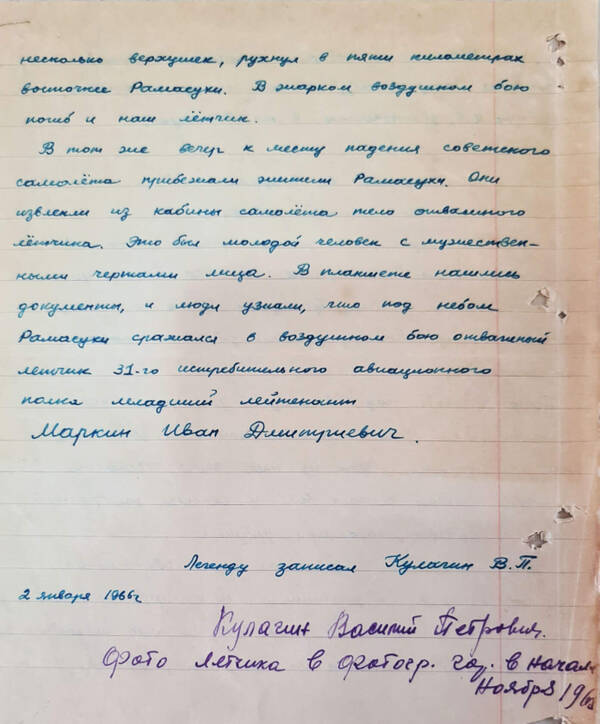 несколько верхушек, рухнул в пяти километрах
восточнее Рамасухи. В жарком воздушном бою
погиб и наш лётчик.
В тот же вечер к месту падения советского
самолёта прибежали жители Рамасухи. Они
извлекли из кабины самолёта тело отважного
лётчика. Это был молодой человек с мужествен-
ными чертами лица. В планшете нашлись
документы, и люди узнали, что под небом
Рамасухи сражался в воздушном бою отважный
летчик 31-го истребительного авиационного
полка младший лейтенант
Маркин Иван Дмитриевич.
Легенду записал Кулагин В.П.
2 января 1966г
Кулагин Василий Петрович.
Фото летчика в фотогр. газ. в начале
ноября